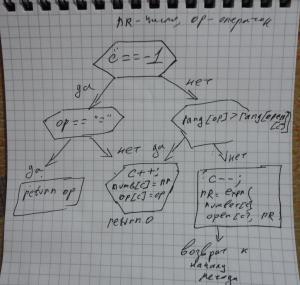 nR - число, op - оператор
c == -1
да
нет
op == "="
rang[op] > rang[open[c]]
да
нет
да
нет
return op
c++;
numb[c] = nR
op[c] = op
return 0
c--;
nR = expn(
number[c]
open[c], nR
возврат к
началу
метода